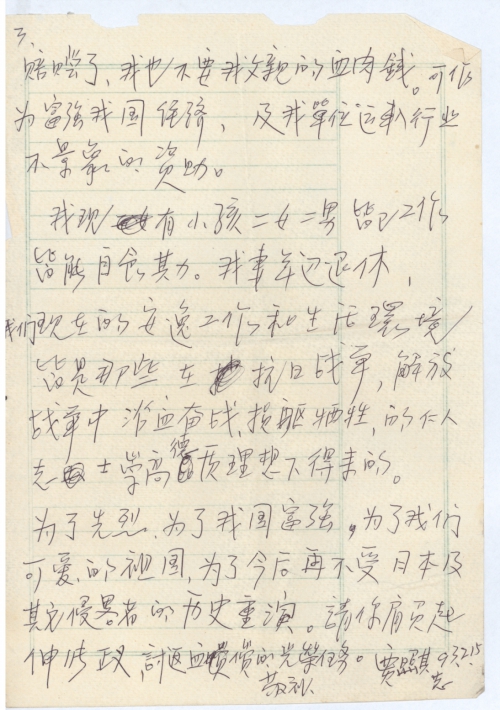 3.
赔偿了,我也不要我父亲的血肉錢。可作
为富強我国经济、及我單位运机行业
不景氣的资助。
我现有小孩二女二男皆已工作
皆能自食其力。我事年迈退休,
我们现在的安逸工作和生活環境
皆是那些在抗日战争,解放
战争中浴血奋战,損躯牺牲,的仁人
志士学高德质理想下得来的。
为了先烈.为了我国富強,为了我们
可爱的祖国,为了今后再不受日本及
其它侵畧者的历史重演。請你肩负起
伸 政,討返血 償的光榮任务。賈 93.2.15
敬礼 志